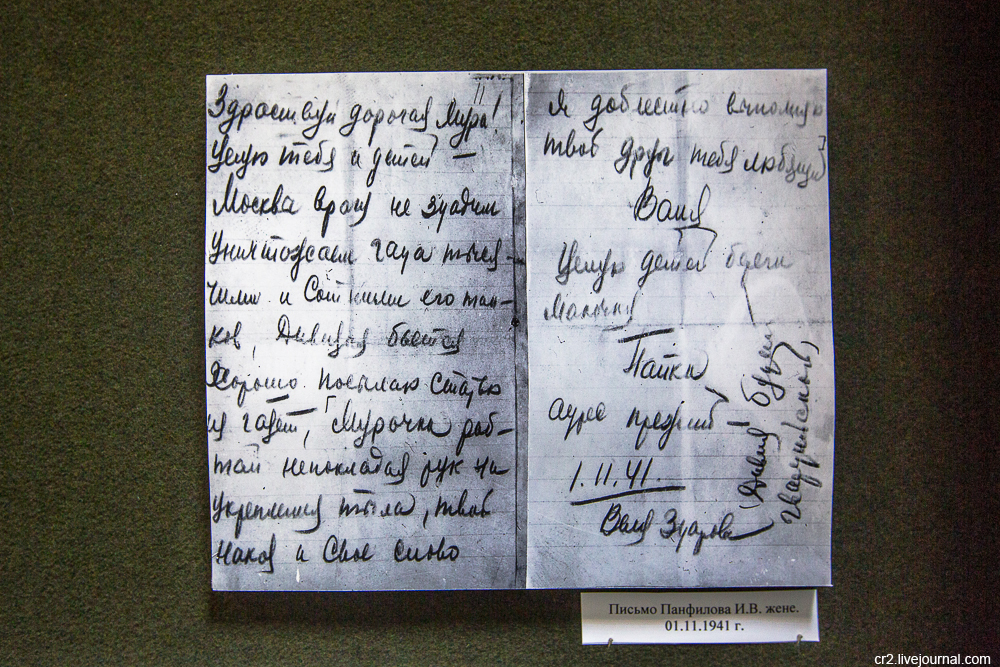 Здраствуй дорогая Мура!
Целую тебя и детей —
Москва врагу не здадим
Уничтожаем гада тыся-
чими и Сотними его тан-
ков, Дивизия бьется
Хорошо. Посылаю Статью
из газет, Мурочка раб-
тай непокладая рук на
укрепления тыла, твой
наказ и Свое слово
Я доблестно выполняю
твой друг тебя любящий
Ваня
Целую детей береги
Малочку
Пайки
адрес прежний
1.11.41.
Валя Здарова
(Дивиз будем
гвардейской)
Письмо Панфилова И.В. жене.
01.11.1941 г.
cr2.livejournal.com